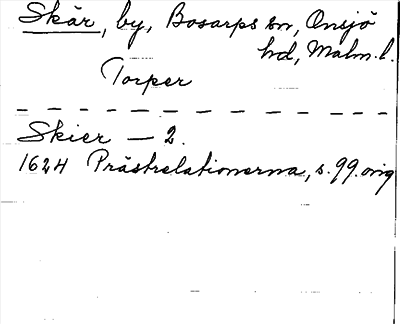 Skär, by, Bosarps sn, Onsjö
hd, Malm. l.
Torper
Skier — 2.
1624 Prästrelationerna, s. 99. orig